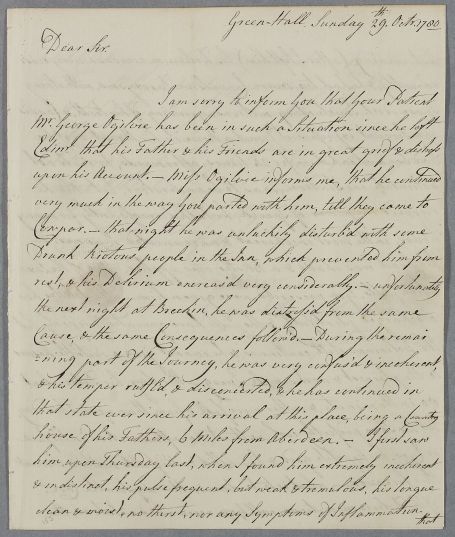 Green-Hall, Sunday 29th. Octr. 1780
Dear Sir.
I am sorry to inform you that your Patient
Mr. George Ogilvie has been in such a Situation since he left
Edinr. that his Father & his Friends are in great grief & distress
upon his Account. — Miss Ogilvie informs me, that he continued
very much in the way you parted with him, till they came to
Cowpar. — that night he was unluckily disturb'd with some
Drunk Riotous people in the Inn, which prevented him from
rest, & his Delirium increas'd very considerably. — unfortunately
the next night at Brechin, he was distress'd from the same
Cause, & the same Consequences follow'd. — During the remai
=ning part of the Journey, he was very confus'd & incoherent,
& his temper ruffl'd, & disconcerted, & he has continued in
that state ever since his arrival at this place, being a Country
house of his Fathers, 6 Miles from Aberdeen. — I first saw
him upon Thursday last, when I found him extremely incoherent
& indistinct, his pulse frequent, but weak & tremulous, his tongue
clean & moist, no thirst, nor any Symptoms of Inflammation.
that